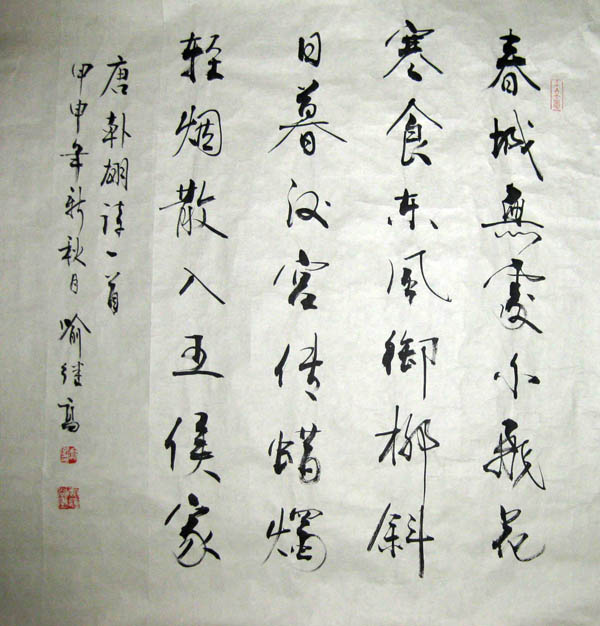 春城無處不飛花
寒食东風御柳斜
日暮汉宫传蜡燭
轻烟散入王侯家
唐韩翃诗一首
甲申年新秋月喻继高